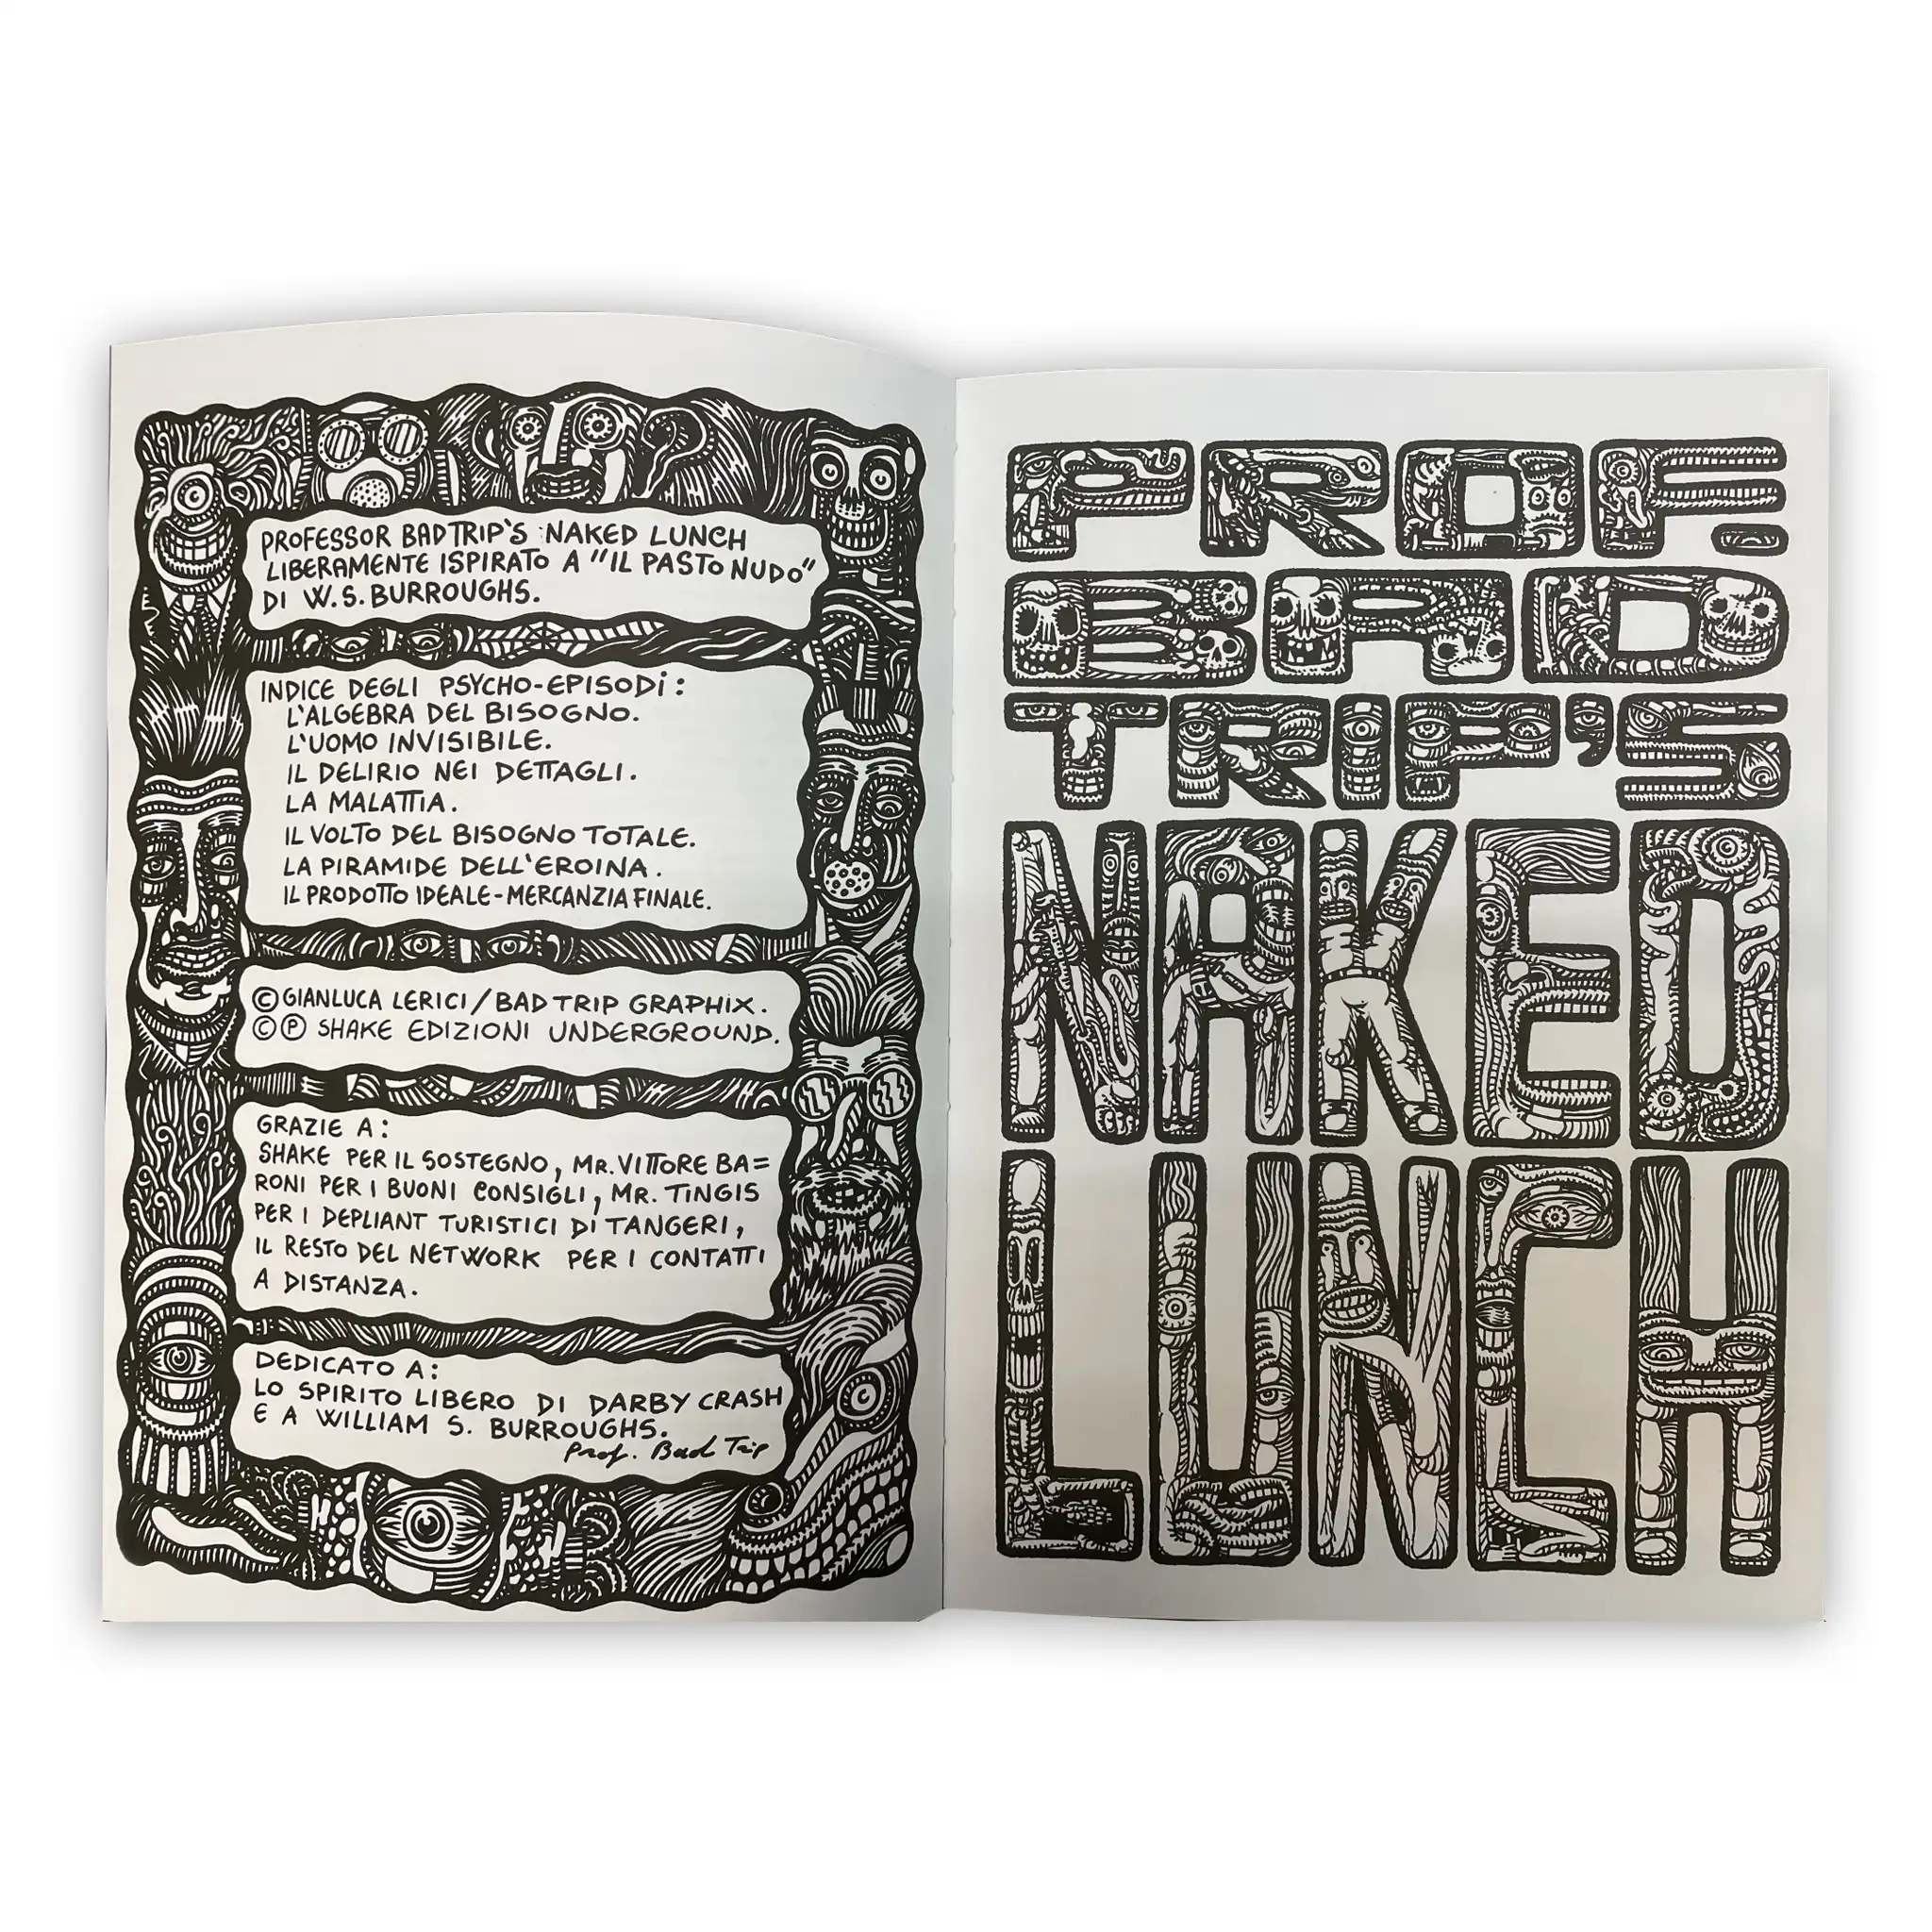 PROFESSOR BADTRIP'S NAKED LUNCH
LIBERAMENTE ISPIRATO A "IL PASTO NUDO"
DI W.S. BURROUGHS.
INDICE DEGLI PSYCHO-EPISODI:
L'ALGEBRA DEL BISOGNO.
L'UOMO INVISIBILE.
IL DELIRIO NEI DETTAGLI.
LA MALATTIA.
IL VOLTO DEL BISOGNO TOTALE.
LA PIRAMIDE DELL'EROINA.
IL PRODOTTO IDEALE-MERCANZIA FINALE.
© GIANLUCA LERICI/BAD TRIP GRAPHIX.
© Ⓟ SHAKE EDIZIONI UNDERGROUND.
GRAZIE A:
SHAKE PER IL SOSTEGNO, MR. VITTORE BA=
RONI PER I BUONI CONSIGLI, MR. TINGIS
PER I DEPLIANT TURISTICI DI TANGERI,
IL RESTO DEL NETWORK PER I CONTATTI
A DISTANZA.
DEDICATO A:
LO SPIRITO LIBERO DI DARBY CRASH
E A WILLIAM S. BURROUGHS.
Prof. Bad Trip
PROF.
BAD
TRIP'S
NAKED
LUNCH